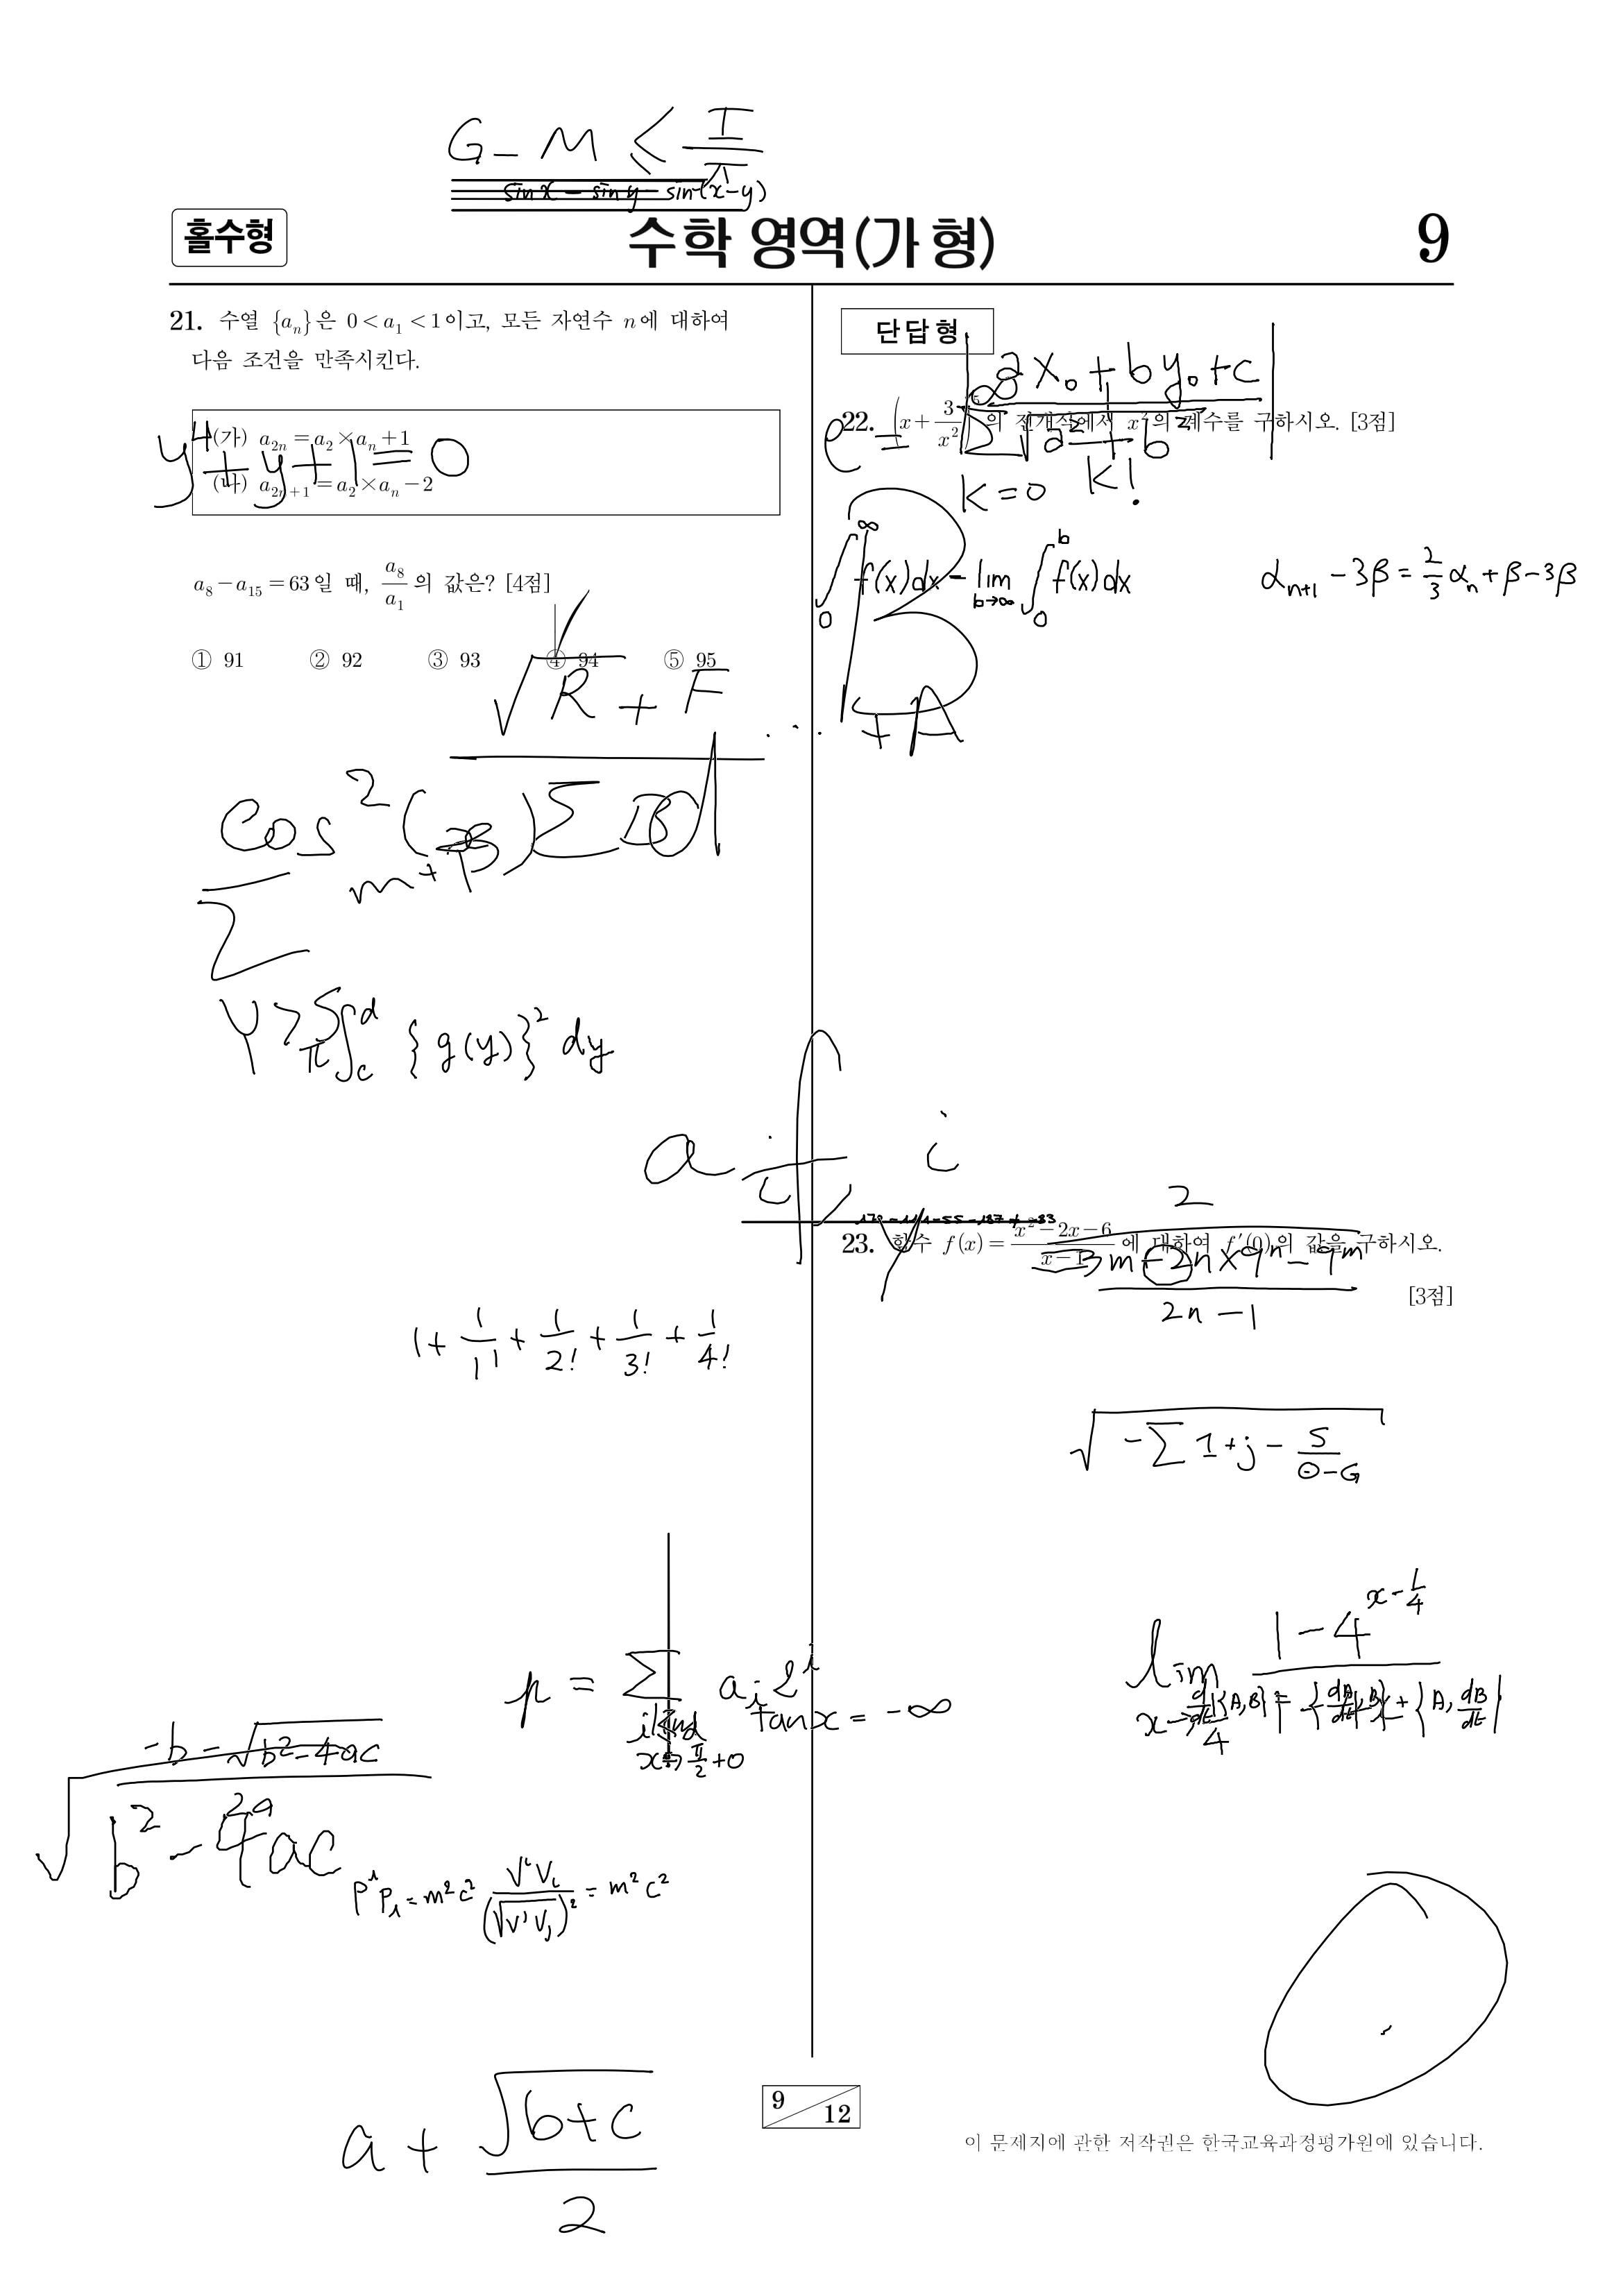 G - M ≤ I/π
sin x - sin y - sin(x-y)
홀수형
수학 영역(가형)
9
21. 수열 {aₙ}은 0 < a₁ < 1이고, 모든 자연수 n에 대하여
다음 조건을 만족시킨다.
(가) a₂ₙ = a₂ × aₙ + 1
(나) a₂ₙ₊₁ = a₂ × aₙ - 2
y⁴ + y + 1 = 0
a₈ - a₁₅ = 63일 때, a₈/a₁의 값은? [4점]
① 91 ② 92 ③ 93 ④ 94 ⑤ 95
√R + F
cos²
Y >
π∫_c^d {g(y)}² dy
1 + 1/1! + 1/2! + 1/3! + 1/4!
p = Σ aᵢ2ⁱ
x→π/2+0 tan x = -∞
-b - √(b²-4ac)
2a
√(b² - 4ac)
pⁱpᵢ = m²c² VⁱVᵢ/(√(VʲVⱼ))² = m²c²
a + √(b+c)/2
단답형
|ax₀ + by₀ + c|
√(a² + b²)
22. (x + 3/x²)⁵의 전개식에서 x²의 계수를 구하시오. [3점]
k=0 k!
∫₀^∞ f(x)dx = lim_{b→∞} ∫₀^b f(x)dx
αₙ₊₁ - 3β = 2/3 αₙ + β - 3β
+ A
a i i
23. 함수 f(x) = (x² - 2x - 6)/(x - 1)에 대하여 f′(0)의 값을 구하시오.
[3점]
2
3m+2n×9ⁿ-9ᵐ
2n - 1
√(-Σ1+j - S/(Θ-G))
lim (1 - 4^(x-1/4))
d/dt{A,B} = {dA/dt, B} + {A, dB/dt}
9
12
이 문제지에 관한 저작권은 한국교육과정평가원에 있습니다.